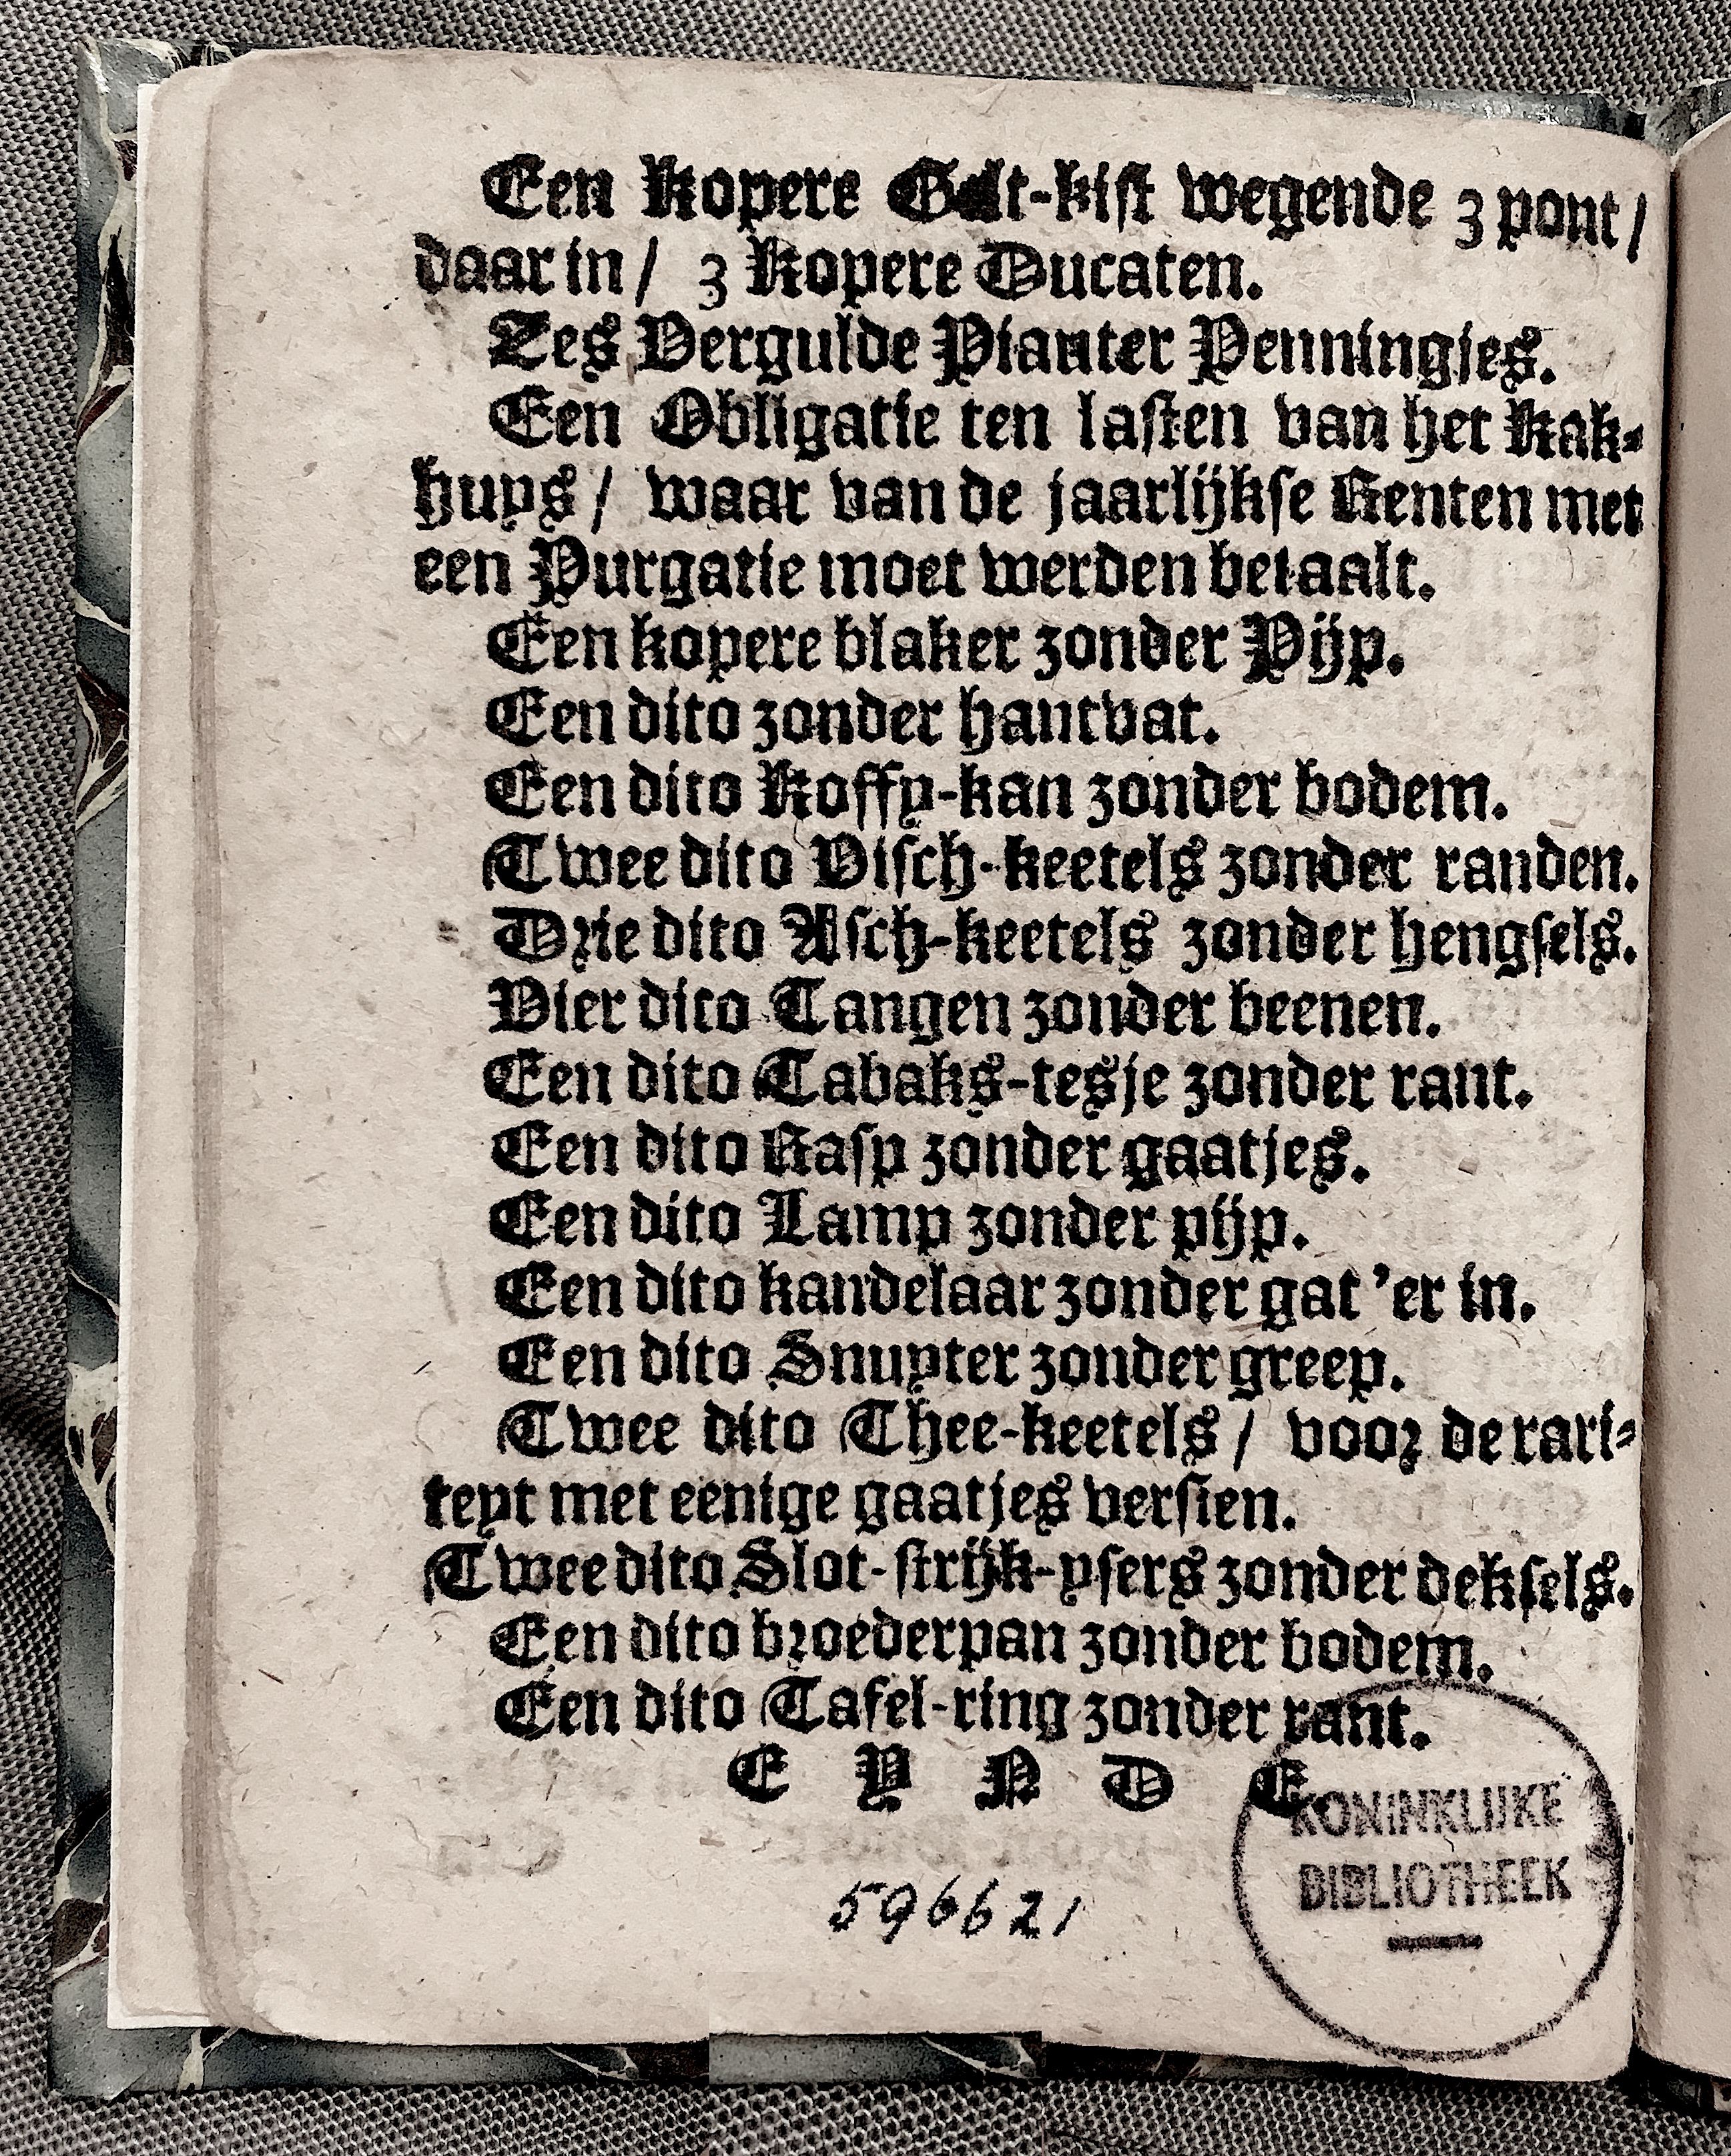 Een Kopere Gelt-kist wegende 3 pont /
daar in / 3 Kopere Ducaten.
Zes Vergulde Pianter Penningjes.
Een Obligatie ten lasten van het Kak-
huys / waar van de jaarlijkse Renten met
een Purgatie moet werden betaalt.
Een kopere blaker zonder Pijp.
Een dito zonder hantvat.
Een dito Koffy-kan zonder bodem.
Twee dito Visch-keetels zonder randen.
Drie dito Asch-keetels zonder hengsels.
Vier dito Tangen zonder beenen.
Een dito Tabaks-tesje zonder rant.
Een dito Rasp zonder gaatjes.
Een dito Lamp zonder pijp.
Een dito kandelaar zonder gat 'er in.
Een dito Snuyter zonder greep.
Twee dito Thee-keetels / voor de rari-
teyt met eenige gaatjes versien.
Twee dito Slot-strijk-ysers zonder deksels.
Een dito broederpan zonder bodem.
Een dito Tafel-ring zonder rant.
E Y N D E.
596621
KONINKLIJKE
BIBLIOTHEEK